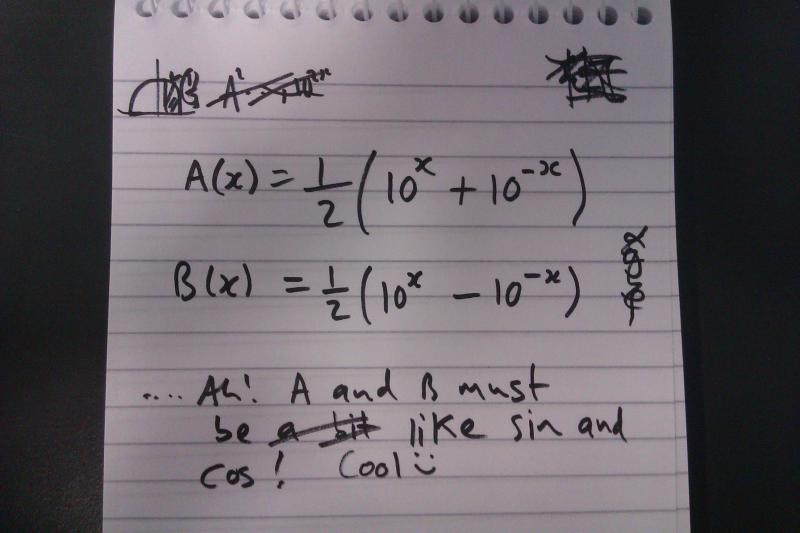 A(x) = 1/2 (10^x + 10^-x)
B(x) = 1/2 (10^x - 10^-x)
.... Ah! A and B must
be a bit like sin and
cos! Cool